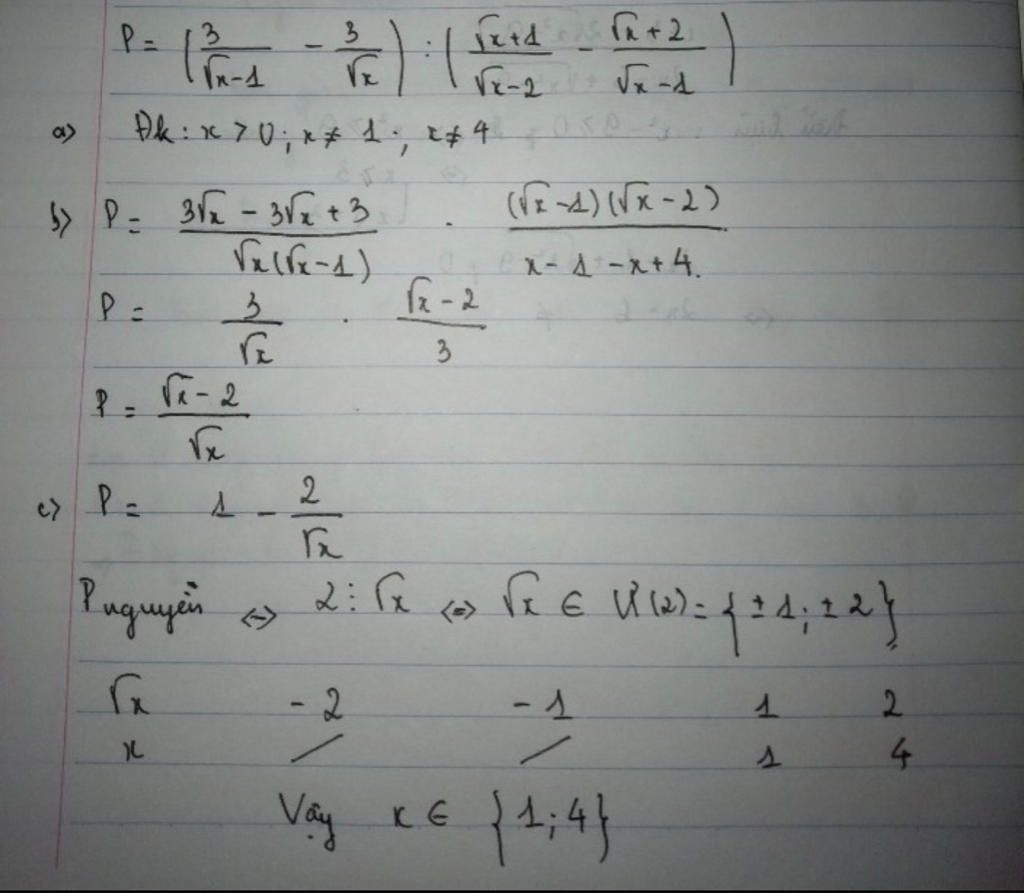 P = (3/(√x-1) - 3/√x) : ((√x+1)/(√x-2) - (√x+2)/(√x-1))
a) Đk: x > 0; x ≠ 1; x ≠ 4
b) P = (3√x - 3√x + 3)/(√x(√x-1)) . ((√x-1)(√x-2))/(x-1-x+4.)
P = 3/√x . (√x-2)/3
P = (√x-2)/√x
c) P = 1 - 2/√x
P nguyên <=> 2 ⋮ √x <=> √x ∈ Ư(2) = {±1; ±2}
√x -2 -1 1 2
x / / 1 4
Vậy x ∈ {1; 4}